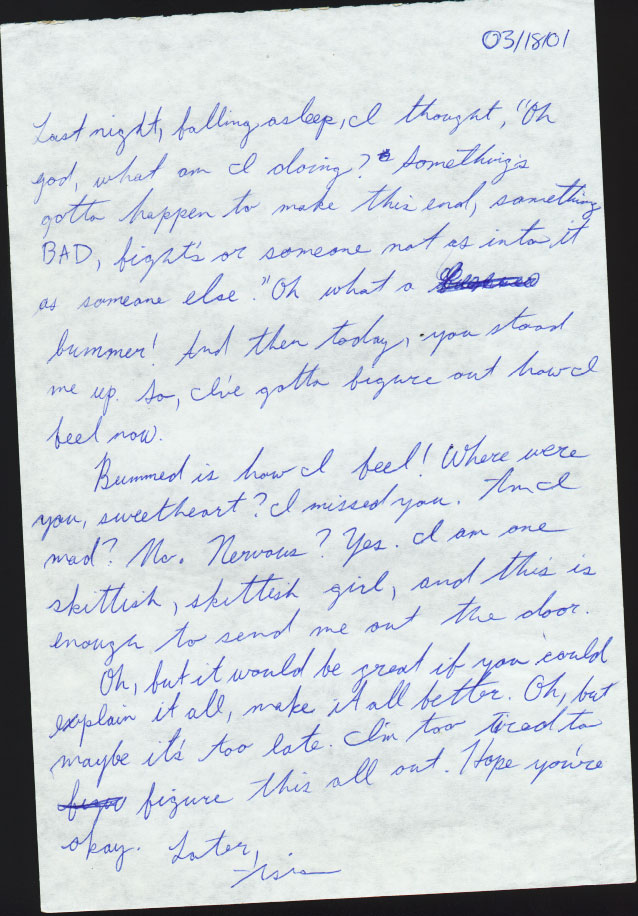 03/18/01
Last night, falling asleep, I thought, "Oh
god, what am I doing? Something's
gotta happen to make this end, something
BAD, fight's or someone not as into it
as someone else." Oh what a
bummer! And then today, you stood
me up. So, I've gotta figure out how I
feel now.
Bummed is how I feel! Where were
you, sweetheart? I missed you. Am I
mad? No. Nervous? Yes. I am one
skittish, skittish girl, and this is
enough to send me out the door.
Oh, but it would be great if you could
explain it all, make it all better. Oh, but
maybe it's too late. I'm too tired to
figure this all out. Hope you're
okay. Later,